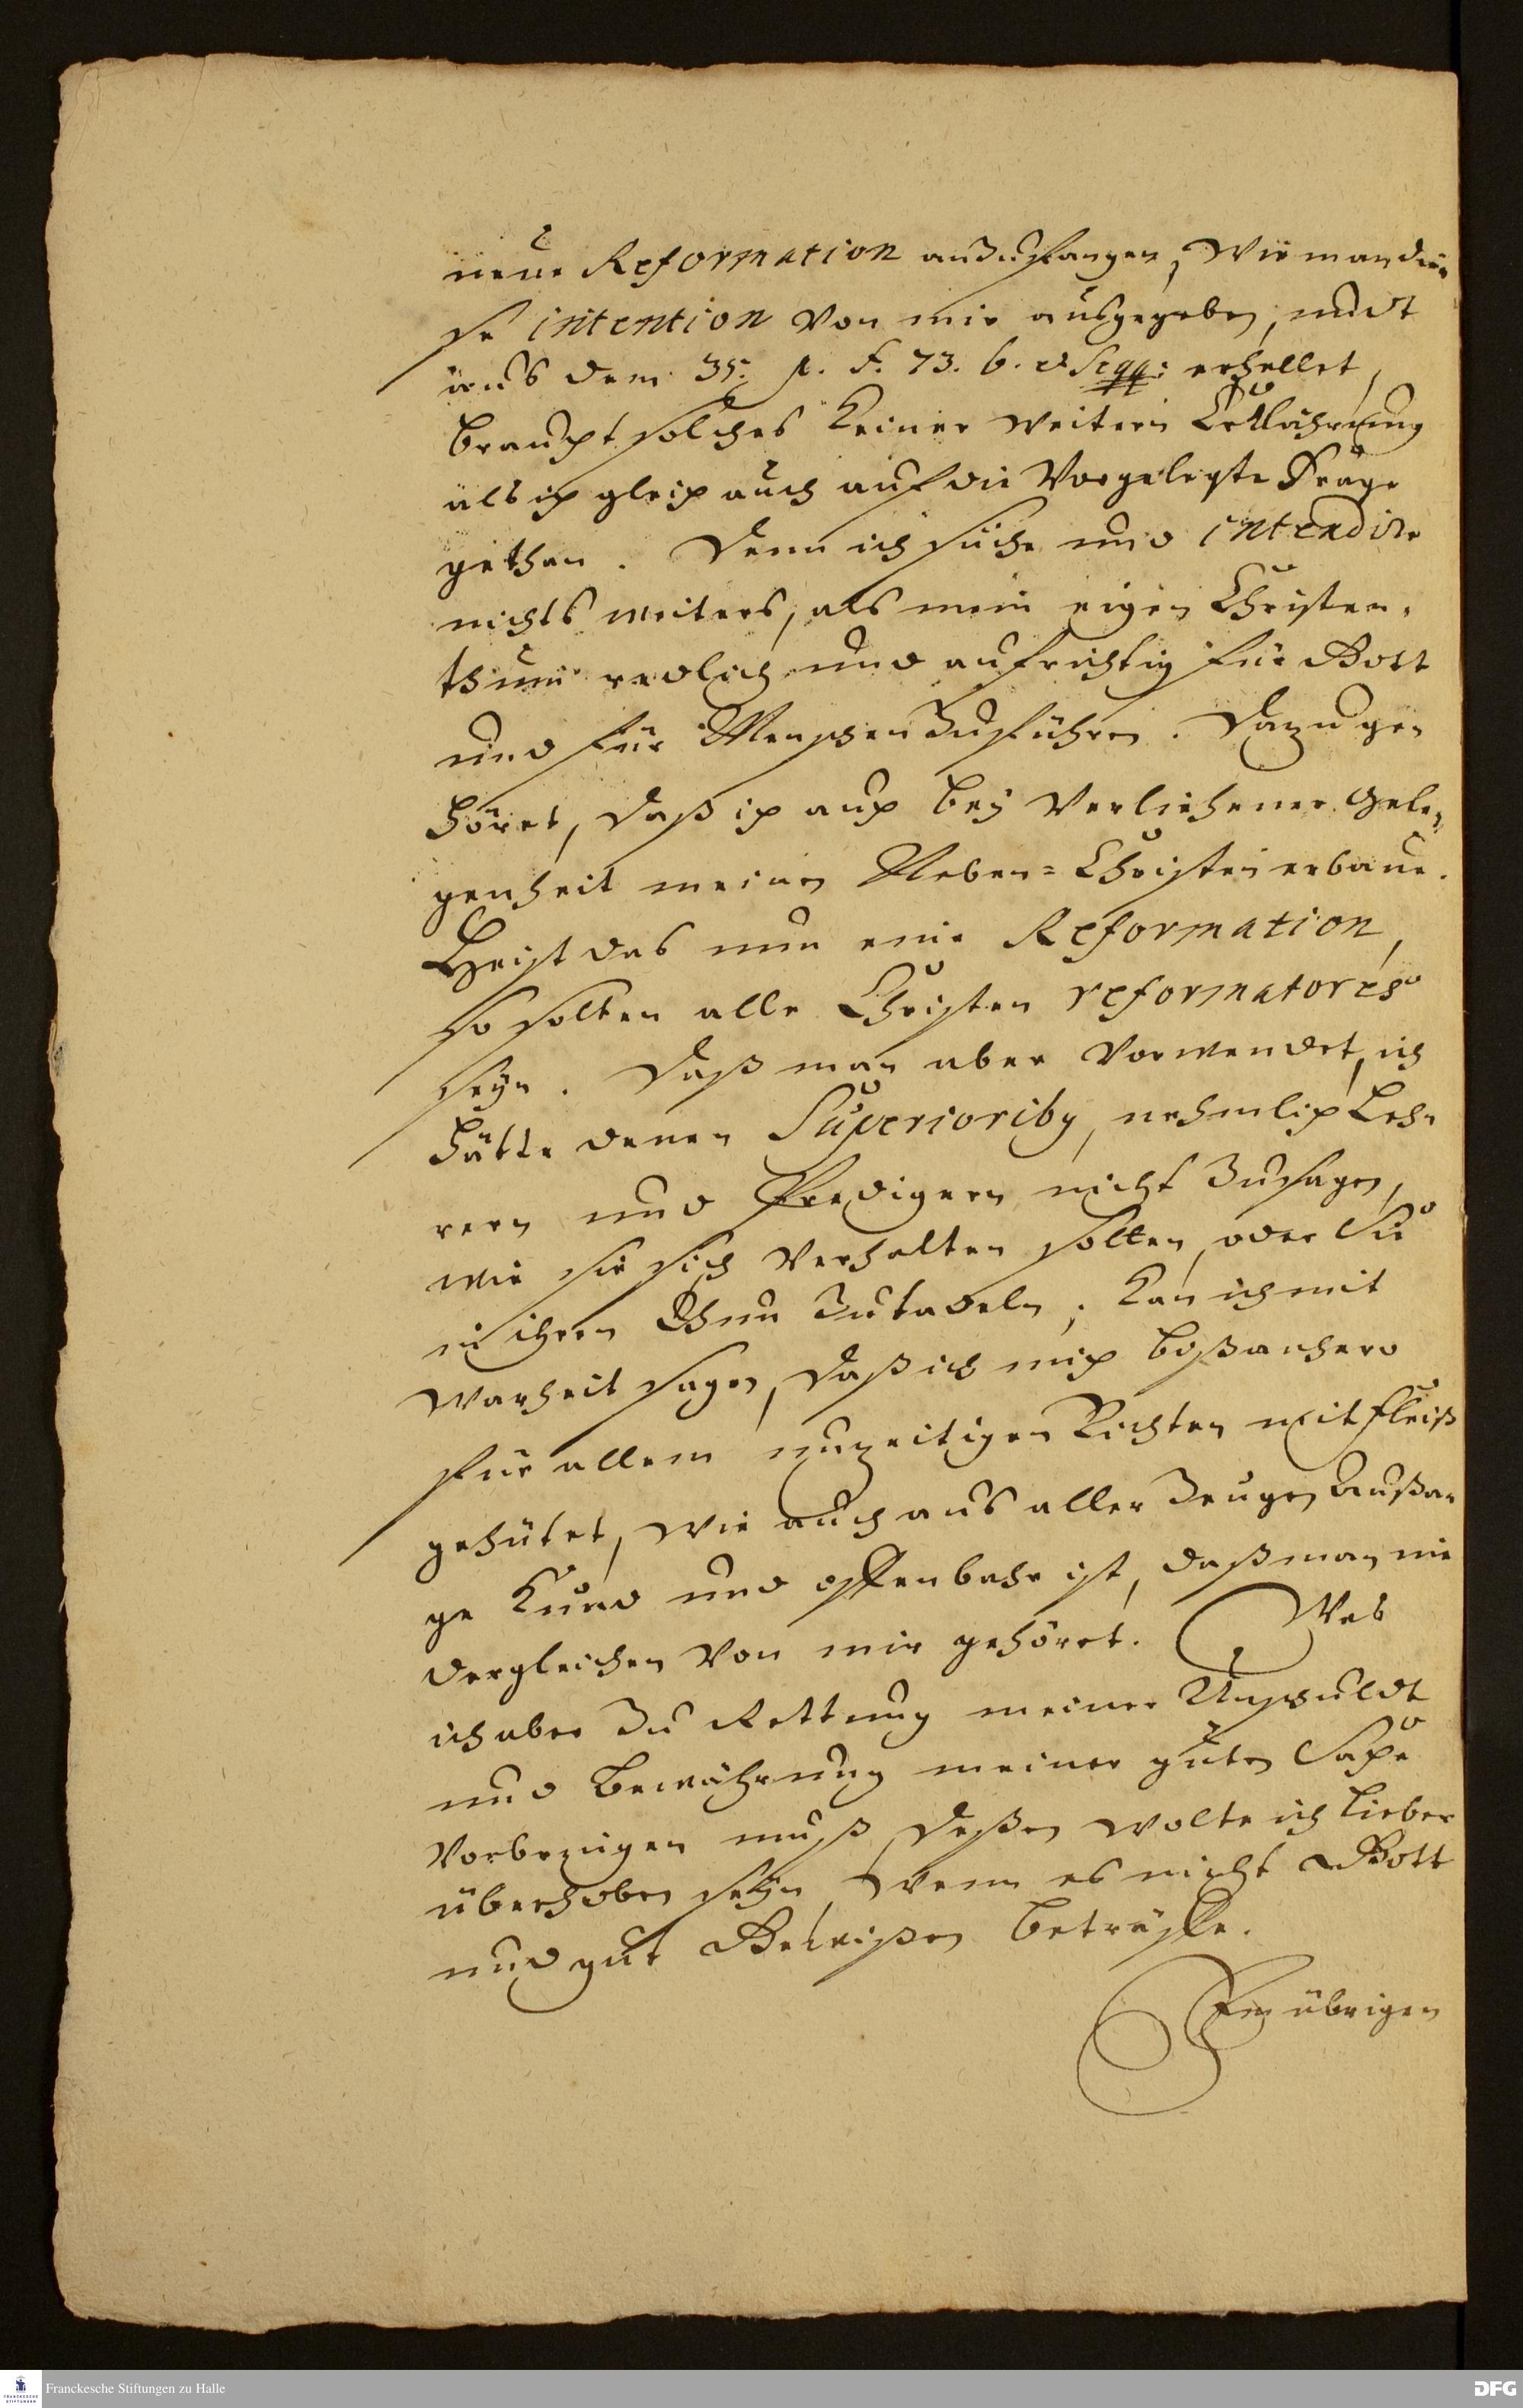 neue Reformation anzufangen, wie man die¬
se intention von mir ausgegeben, undt
aus dem 35. p. f. 73. b. & seqq: erhellet,
braucht solches keiner weitern Erklährung
als ich gleich auch auf die vorgelegte Frage
gethan. Denn ich suche und intendire
nichts weiters, als mein eigen Christen¬
thum redlich und aufrichtig für Gott
und für Menschen zuführen. Dazu ge¬
höret, daß ich auch bey verliehener Gele¬
genheit meinen Neben=Christen erbaue.
Heist das nun eine Reformation,
so solten alle Christen reformatores
seyn. Daß man aber vorwendet, ich
hätte denen Superiorib9, nehmlich Leh¬
rern und Predigern nicht zusagen,
wie sie sich verhalten solten, oder Sie
in ihren Thun zutadeln; Kan ich mit
Warheit sagen, daß ich mich bißanhero
für allem unzeitigen Richten mit fleiß
gehütet, wie auch aus aller Zeugen Außa¬
ge kund und offenbahr ist, daß man nie
dergleichen von mir gehöret. Was
ich aber zu Rettung meiner Unschuldt
und Bewährung meiner guten Sache
vorbringen muß, deßen wolte ich lieber
überhoben seyn, wenn es nicht Gott
und gut Gewißen beträffe.
Im übrigen
Franckesche Stiftungen zu Halle
DFG